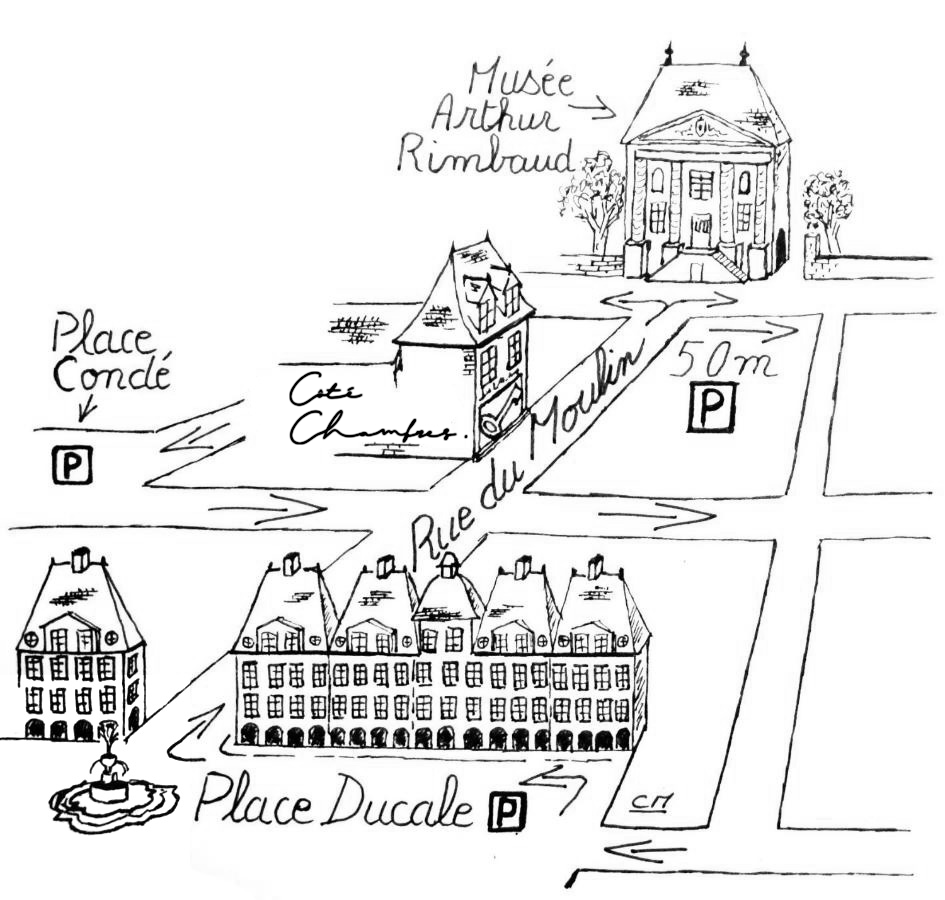 Musée
Arthur
Rimbaud
Place
Condé
P
Coté
Champs.
50m
P
Rue du Moulin
Place Ducale P
CM